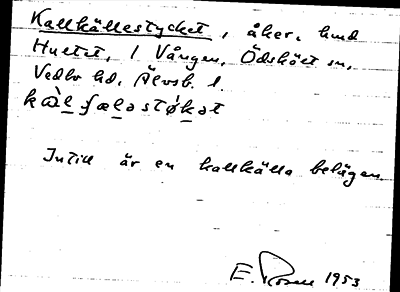 Kallkällestycket, åker, und
Hultet, 1 Vången, Ödskölt sn,
Vedbo hd, Älvsb. l.
kàl ɕæləstø̀kət
Intill är en kallkälla belägen.
E. Rosell 1953